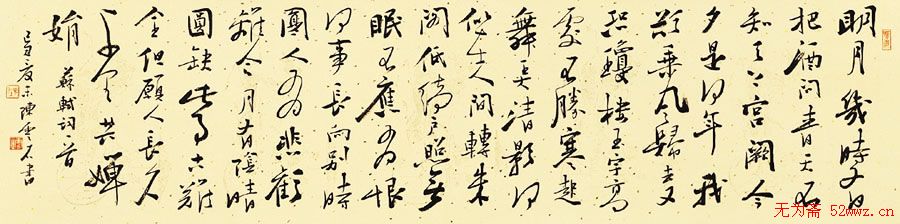 明月幾時有
把酒問青天不
知天上宮闕今
夕是何年我
欲乘風歸去又
恐瓊樓玉宇高
處不勝寒起
舞弄清影何
似在人間轉朱
閣低倚戶照無
眠不應有恨
何事長向別時
圓人有悲歡
離合月有陰晴
圓缺此事古難
全但願人長久
千里共嬋
娟
蘇軾詞一首
书
无为斋 52wwz.cn